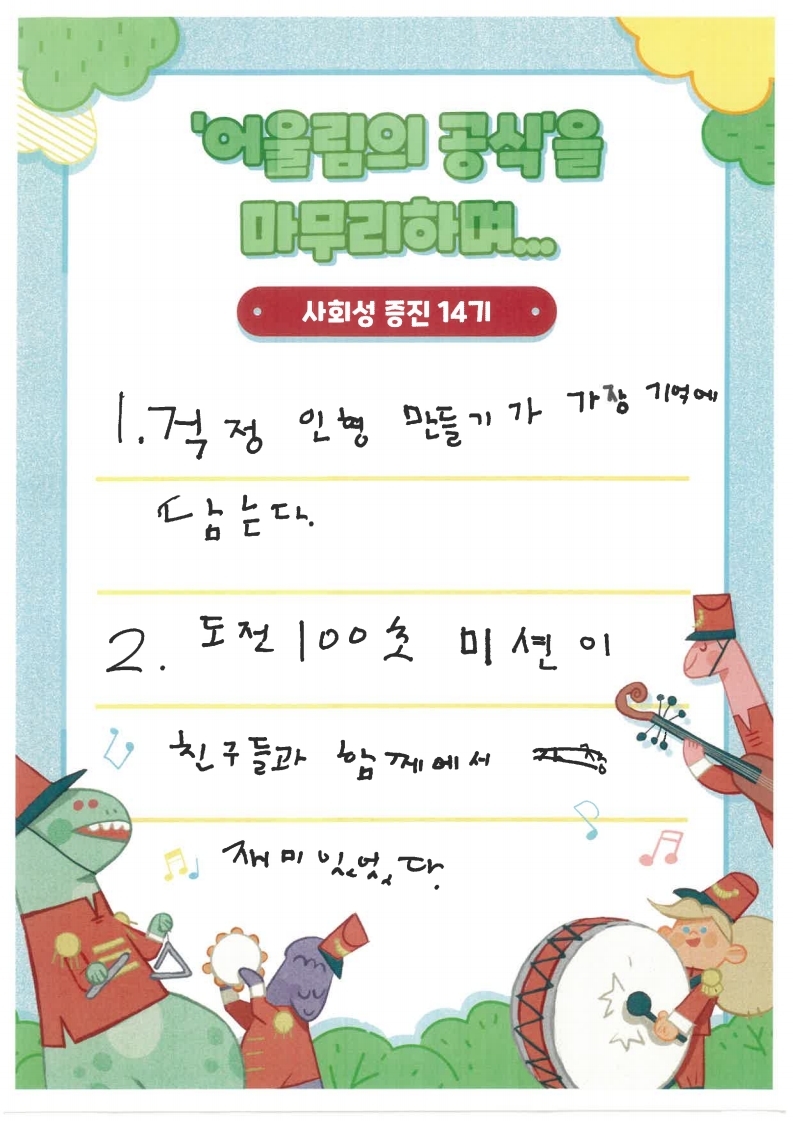 '어울림의 공식'을
마무리하며...
사회성 증진 14기
1. 걱정 인형 만들기가 가장 기억에
남는다.
2. 도전 100초 미션이
친구들과 함께에서
재미있었다.